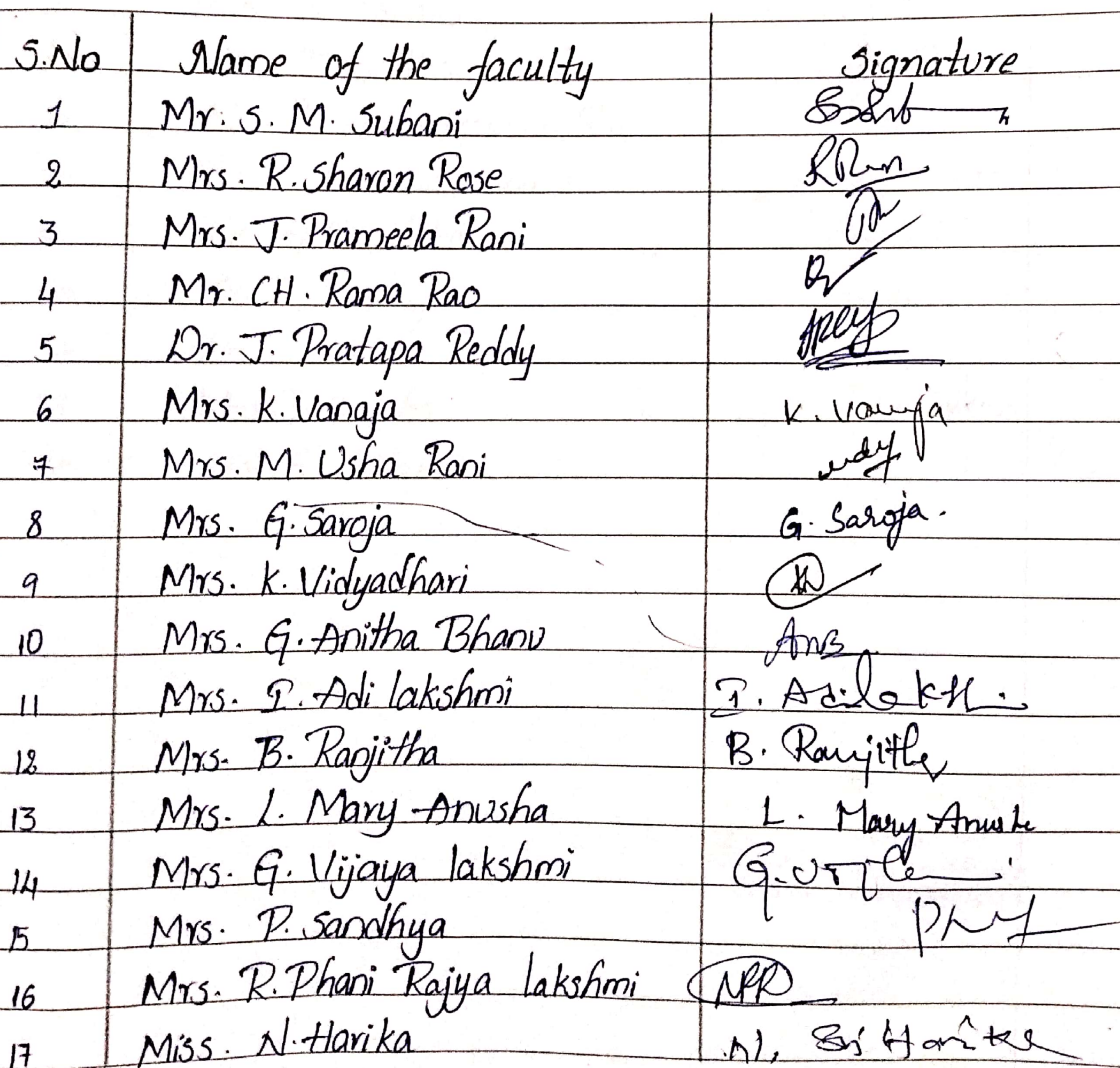 S.No Name of the faculty Signature
1 Mr. S. M. Subani
2 Mrs. R. Sharon Rose
3 Mrs. J. Prameela Rani
4 Mr. CH. Rama Rao
5 Dr. J. Pratapa Reddy
6 Mrs. K. Vanaja K. Vanaja
7 Mrs. M. Usha Rani
8 Mrs. G. Saroja G. Saroja.
9 Mrs. K. Vidyadhari
10 Mrs. G. Anitha Bhanu
11 Mrs. I. Adi lakshmi
12 Mrs. B. Ranjitha B. Ranjitha
13 Mrs. L. Mary Anusha L. Mary Anusha
14 Mrs. G. Vijaya lakshmi
15 Mrs. P. Sandhya
16 Mrs. R. Phani Rajya lakshmi
17 Miss. N. Harika N. Sri Harika